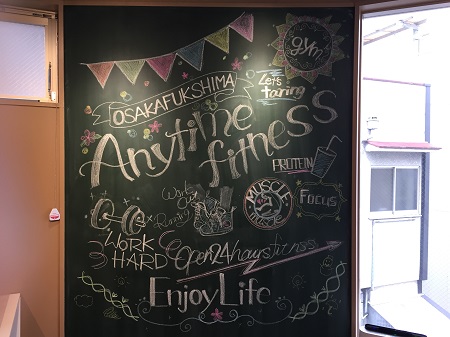 gym
OSAKAFUKSHIMA
Let's
taring
Anytime
fitness
PROTEIN
Work
Out
Running
MUSCLE
Focus
WORK
HARD
Open24hoursfitness
Enjoy Life